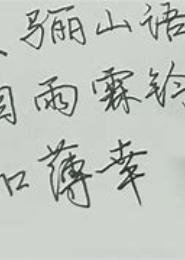 骊山语
雨霖铃
薄幸